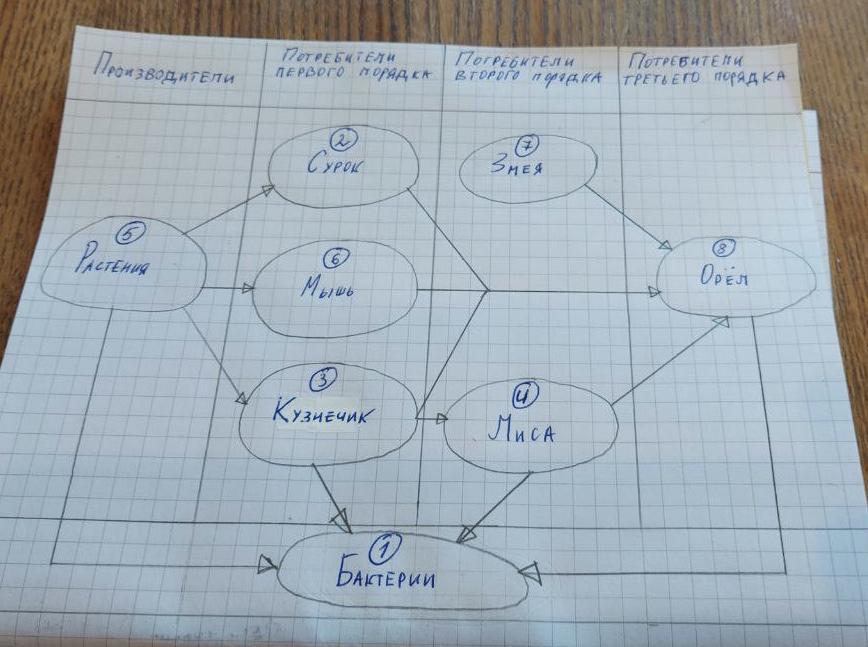 Производители
Потребители
первого порядка
Потребители
второго порядка
Потребители
третьего порядка
2
Сурок
7
Змея
5
Растения
6
Мышь
8
Орёл
3
Кузнечик
4
Лиса
1
Бактерии